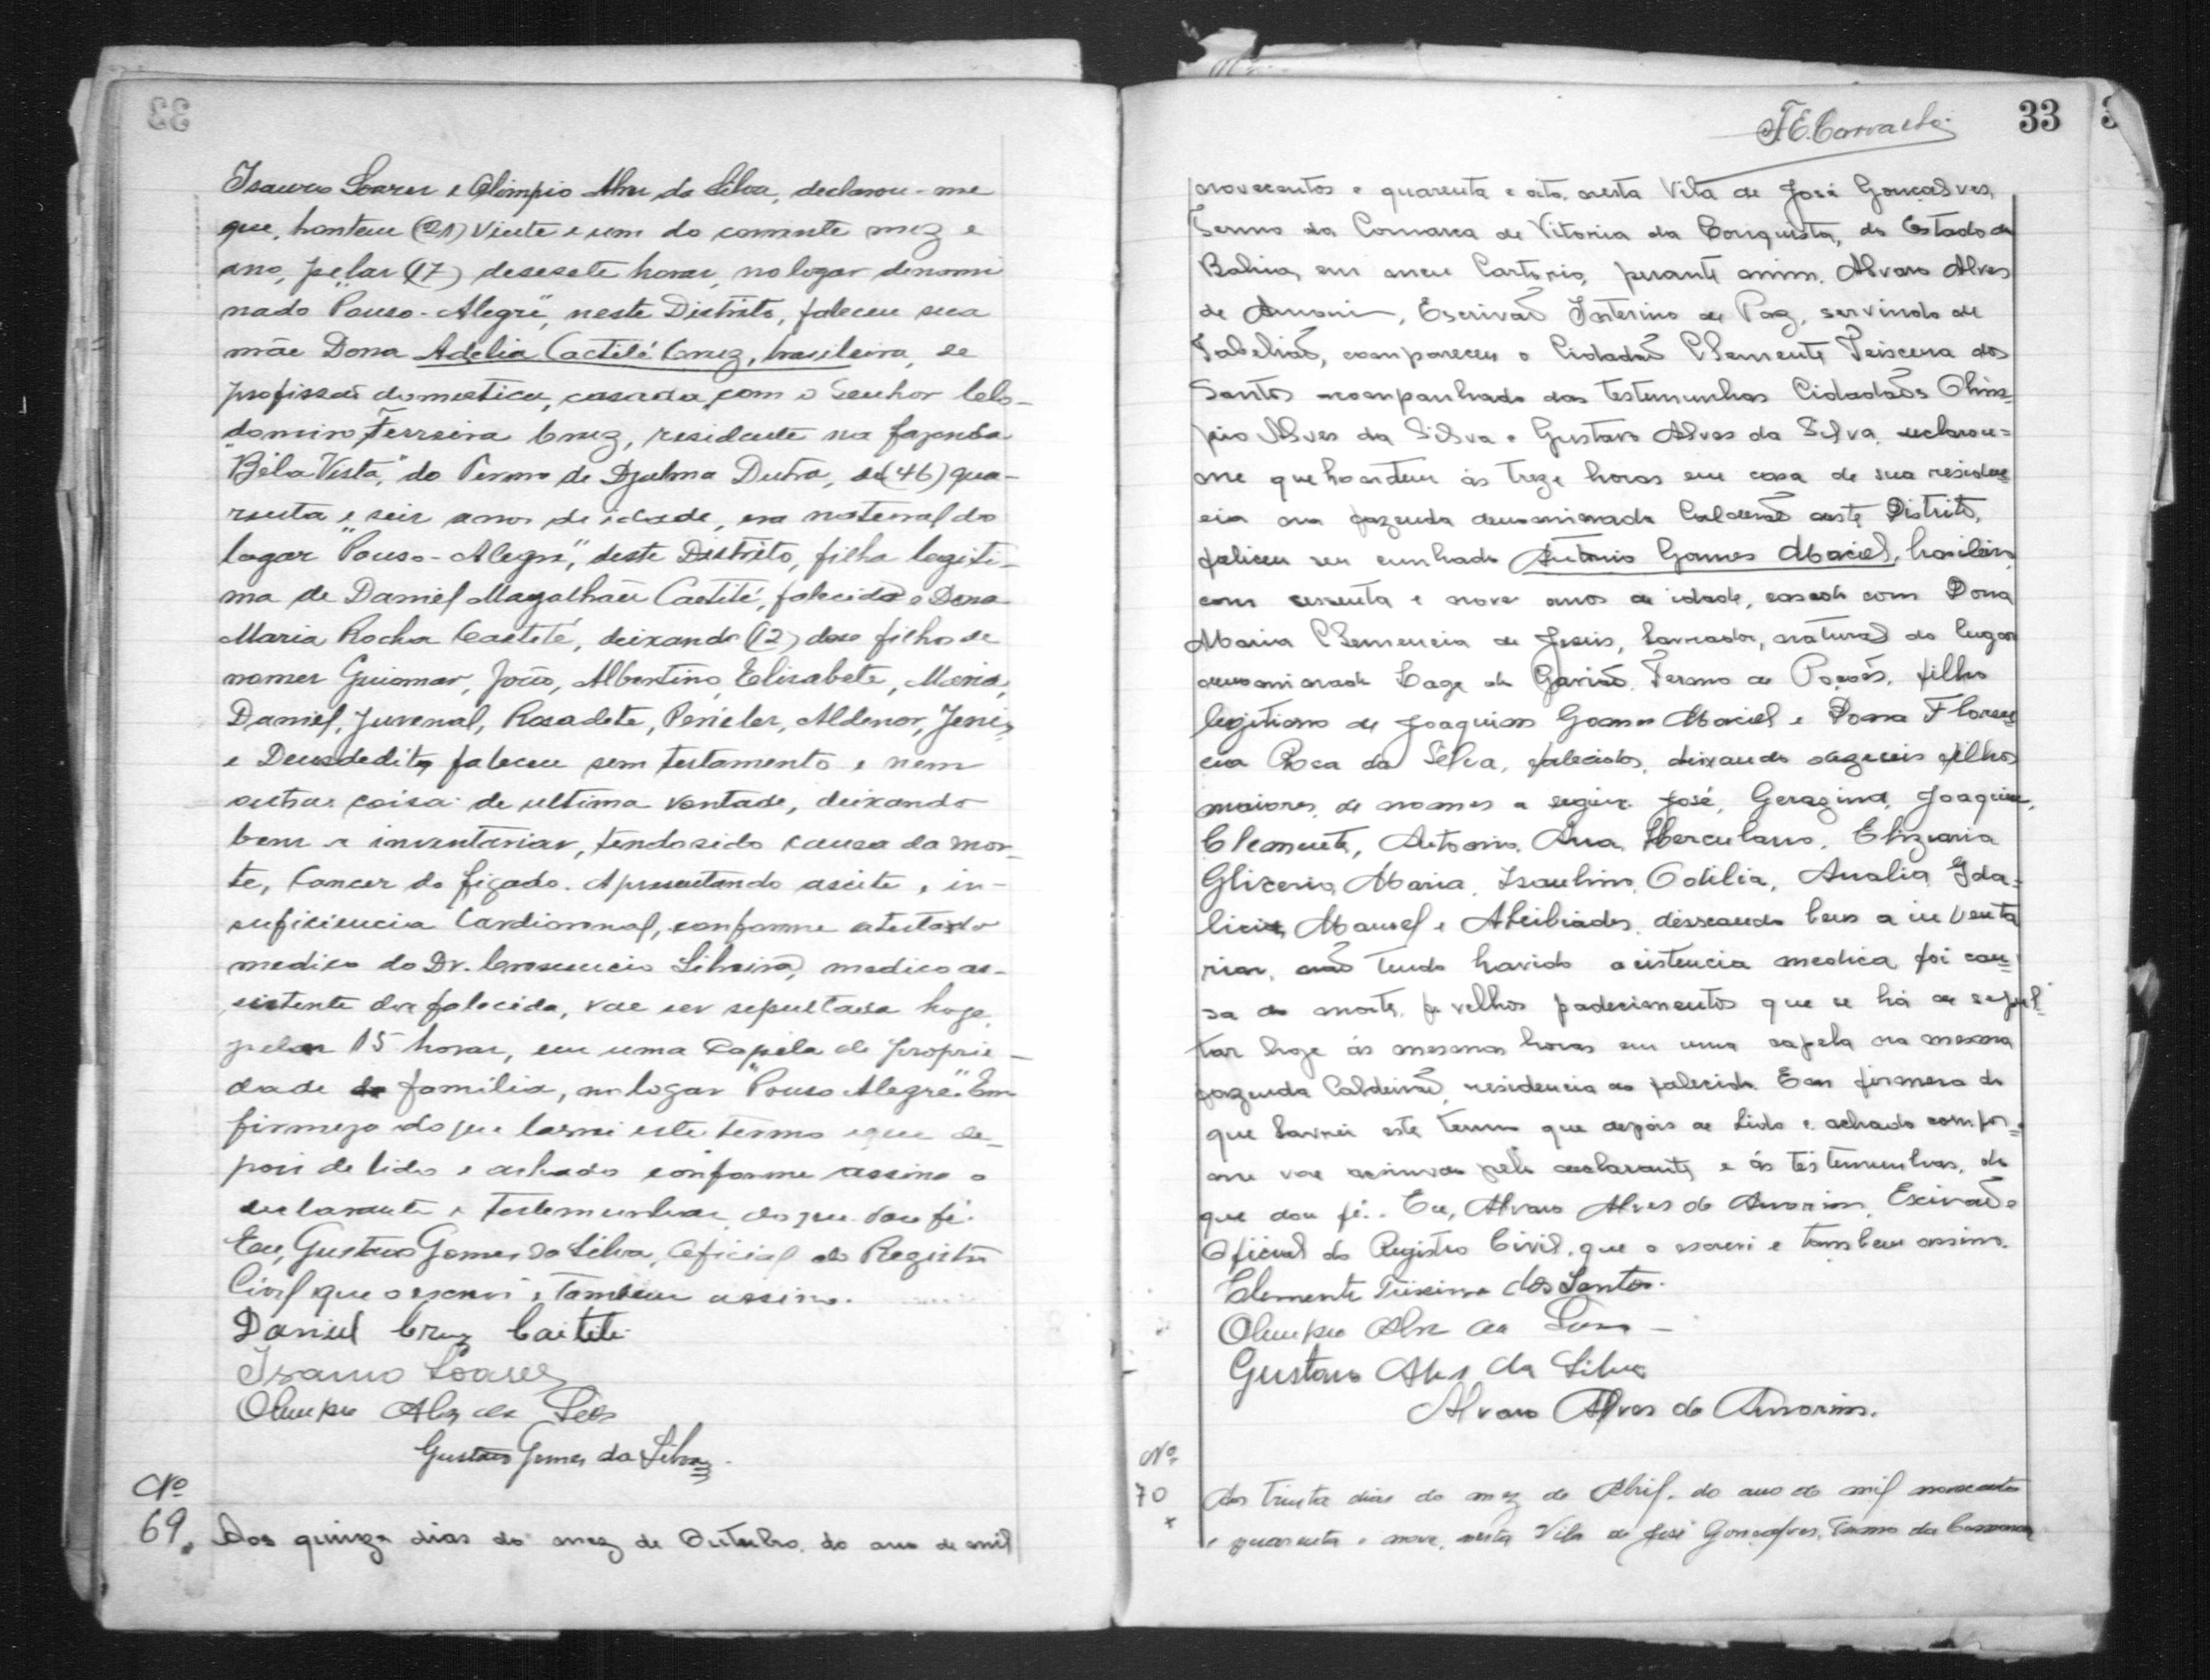 Isauro Soares e Olimpio Alves da Silva, declarou-me
que, hontem (21) vinte e um do corrente mez e
ano, pelas (17) desesete horas, no logar denomi
nado "Pouso-Alegre", neste Distrito, faleceu sua
mãe Dona Adelia Cactité Cruz, brasileira, de
profissão domestica, casada com o Senhor Clo-
domiro Ferreira Cruz, residente na fazenda
"Béla Vista," do Termo de Djalma Dutra, de (46) qua-
renta e seis anos de idade, era natural do
logar "Pouso-Alegre," deste Distrito, filha legiti-
ma de Daniel Magalhães Caetité, falecido e Dona
Maria Rocha Caetité, deixando (12) dose filhos de
nomes Guiomar, João, Albertino, Elisabete, Maria,
Daniel, Juvenal, Rosadete, Pericles, Aldenor, Jenis,
e Deusdedite, faleceu sem testamento e nem
outras coisa de ultima vontade, deixando
bens a inventariar, tendo sido causa da mor-
te, Cancer do figado. Apresentando ascite, in-
suficiencia Cardiorenal, conforme atestado
medico do Dr. Crescencio Silveira, medico as-
sistente da falecida, vae ser sepultada hoje,
pelas 15 horas, em uma Capela de proprie-
dade da familia, no logar "Pouso Alegre". Em
firmeza do que lavrei este termo e que de-
pois de lido e achado conforme assina o
declarante e testemunhas, do que dou fé.
Eu, Gustavo Gomes da Silva, Oficial do Registro
Civil que o escrevi e tambem assino.
Daniel Cruz Caitité
Isauro Soares
Olimpio Alves da Silva
Gustavo Gomes da Silva
Nº
69. Aos quinze dias do mez de Outubro do ano de mil
33
novecentos e quarenta e oito, nesta Vila de José Gonçalves,
Termo da Comarca de Vitoria da Conquista, do Estado da
Bahia, em meu Cartorio, perante mim, Alvaro Alves
de Amorim, Escrivão Interino de Paz, servindo de
Tabelião, compareceu o Cidadão Clemente Teixeira dos
Santos acompanhado das testemunhas Cidadãos Olim-
pio Alves da Silva e Gustavo Alves da Silva, declarou-
me que hontem ás treze horas em casa de sua residen-
cia na fazenda denominada Caldeirão neste Distrito,
faliceu seu cunhado Antonio Gomes Maciel, brasileiro,
com sessenta e nove anos de idade, casado com Dona
Maria Clemencia de Jesus, lavrador, natural do lugar
denominado Lage do Gavião, Termo de Poções, filho
legitimo de Joaquim Gomes Maciel e Dona Floren-
cia Rosa da Silva, falecidos, deixando dezeseis filhos
maiores, de nomes a seguir José, Gerazina, Joaquim,
Clemente, Antonio, Ana, Herculano, Elizaria
Glizerio, Maria, Isaulino, Odilia, Analia, Ida-
licia, Manoel e Alcibiades, deixando bens a inventa
riar, não tendo havido acistencia medica, foi cau-
sa da morte, velhos padecimentos que se há de sepul-
tar hoje ás mesmas horas em uma capela na mesma
fazenda Caldeirão, residencia do falecido. Em firmesa do
que lavrei este termo que depois de lido e achado confor-
me vae assinado pelo declarante e ás testemunhas, do
que dou fé. Eu, Alvaro Alves de Amorim, Escrivão e
Oficial do Registro Civil, que o escrevi e tambem assino.
Clemente Teixeira dos Santos.
Olimpio Alves da Silva
Gustavo Alves da Silva
Alvaro Alves de Amorim.
Nº
70 Aos trinta dias do mez de Abril, do ano de mil novecentos
e quarenta e nove, nesta Vila de José Gonçalves, Termo da Comarca